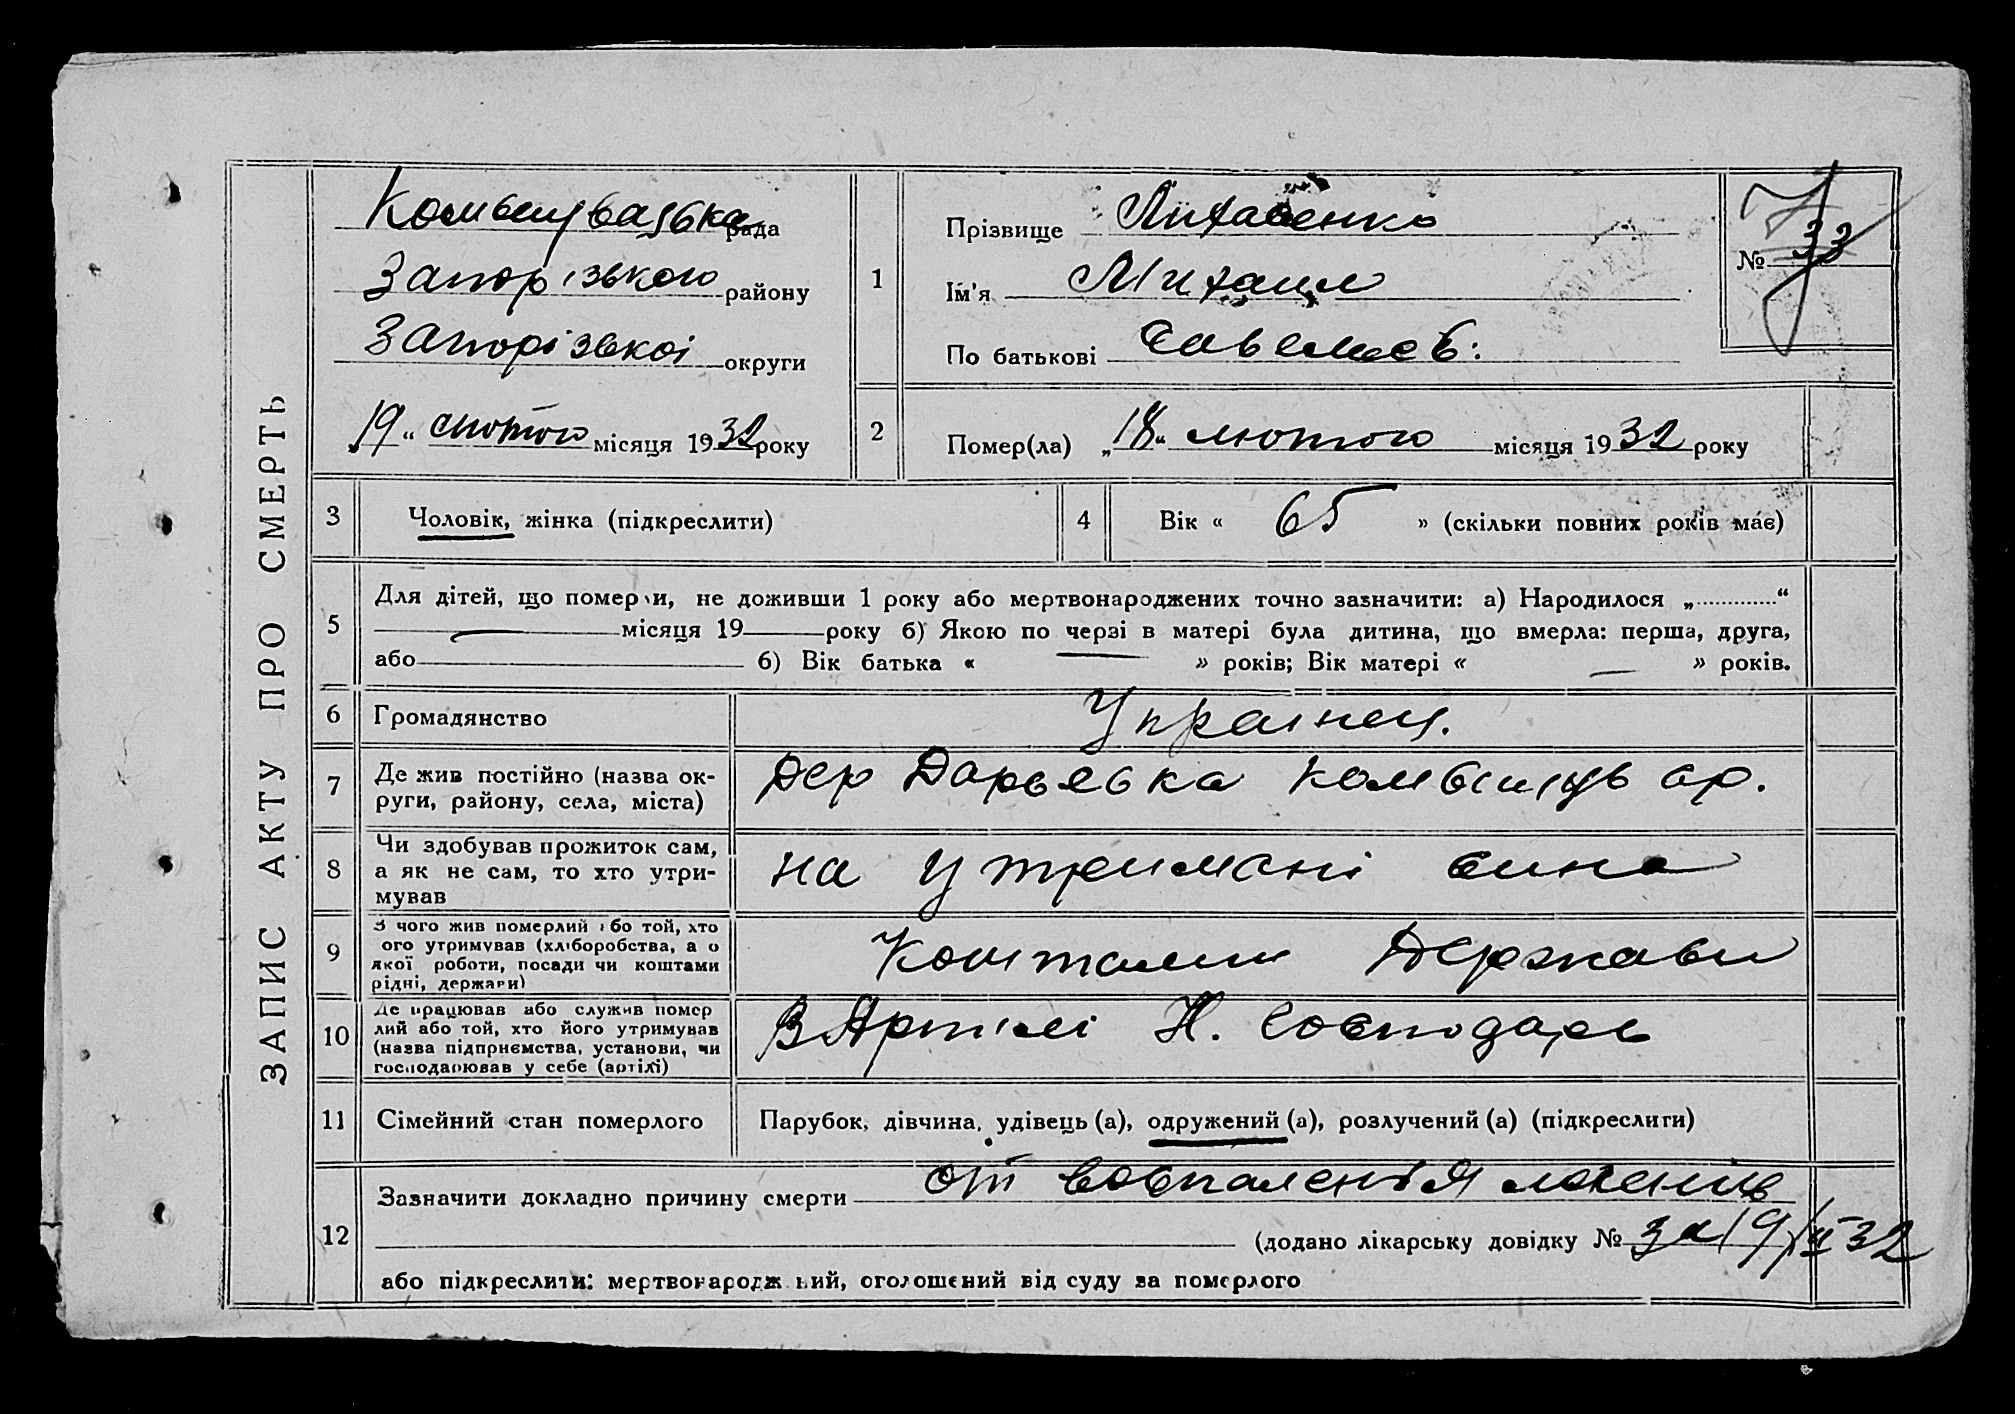 ЗАПИС АКТУ ПРО СМЕРТЬ
рада
Запорізького району
Запорізької округи
19 „ лютого місяця 1932 року
1
Прізвище
Ім'я Михаил
По батькові Савелиев:
№ 33
2
Помер(ла) „18“ лютого місяця 1932 року
3
Чоловік, жінка (підкреслити)
4
Вік « 65 » (скільки повних років має)
5
Для дітей, що померли, не доживши 1 року або мертвонароджених точно зазначити: а) Народилося „ “
місяця 19 року б) Якою по черзі в матері була дитина, що вмерла: перша, друга,
або б) Вік батька « » років; Вік матері « » років.
6
Громадянство
Українец.
7
Де жив постійно (назва ок-
руги, району, села, міста)
Дер Дарьевка ср.
8
Чи здобував прожиток сам,
а як не сам, то хто утри-
мував
на утримані сина
9
З чого жив померлий або той, хто
ого утримував (хліборобства, а о
якої роботи, посади чи коштами
рідні, держави)
Коштами Держави
10
Де працював або служив помер
лий або той, хто його утримував
(назва підприємства, установи, чи
господарював у себе (артілі)
В Артілі Н. Господарь
11
Сімейний стан померлого
Парубок, дівчина, удівець (а), одружений (а), розлучений (а) (підкреслити)
12
Зазначити докладно причину смерти от воспаления легких
(додано лікарську довідку № за 19/II 32
або підкреслити: мертвонароджений, оголошений від суду за померлого